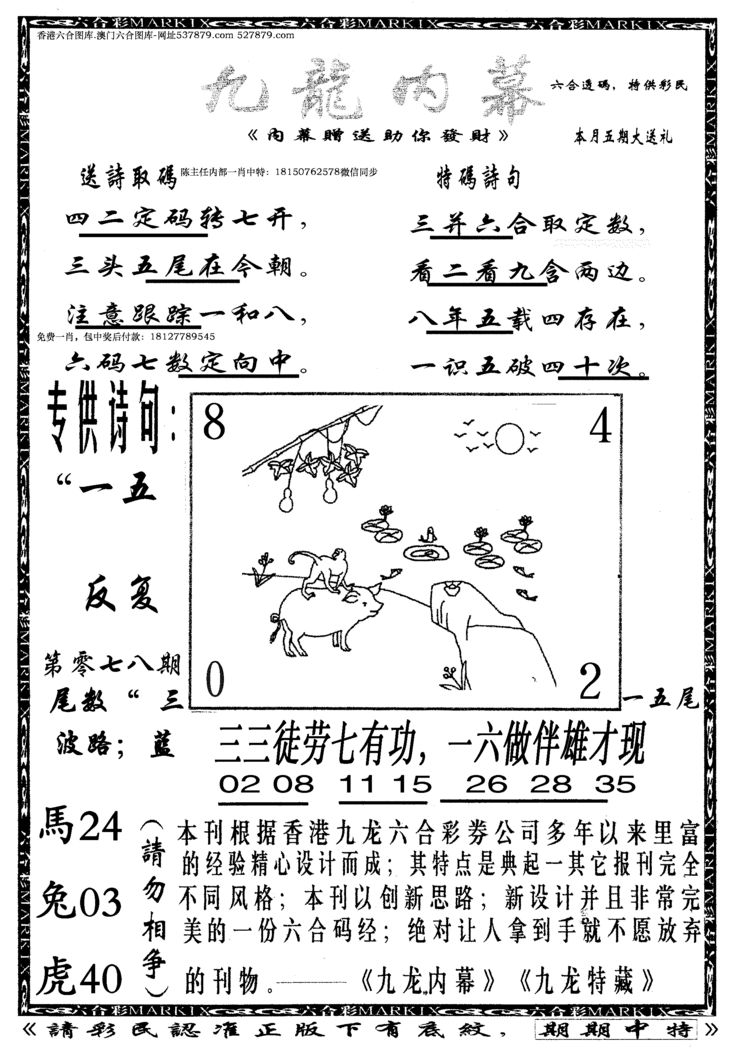 六合彩MARKIX
香港六合图库.澳门六合图库-网址537879.com 527879.com
九龍内幕
六合透码，特供彩民
《内幕贈送助你發財》
本月五期大送礼
送詩取碼
陈主任内部一肖中特：18150762578微信同步
特碼詩句
四二定码转七开，
三头五尾在今朝。
注意跟踪一和八，
免费一肖，包中奖后付款：18127789545
六码七数定向中。
三并六合取定数，
看二看九含两边。
八年五载四存在，
一识五破四十次。
专供诗句：
“一五
反复
第零七八期
尾数“三
波路；蓝
8
4
0
2
一五尾
三三徒劳七有功，一六做伴雄才现
02 08 11 15 26 28 35
馬24
兔03
虎40
（請勿相争）
本刊根据香港九龙六合彩券公司多年以来里富
的经验精心设计而成；其特点是典起一其它报刊完全
不同风格；本刊以创新思路；新设计并且非常完
美的一份六合码经；绝对让人拿到手就不愿放弃
的刊物。———《九龙内幕》《九龙特藏》
六合彩MARKIX
《請彩民認准正版下有底紋，期期中特》